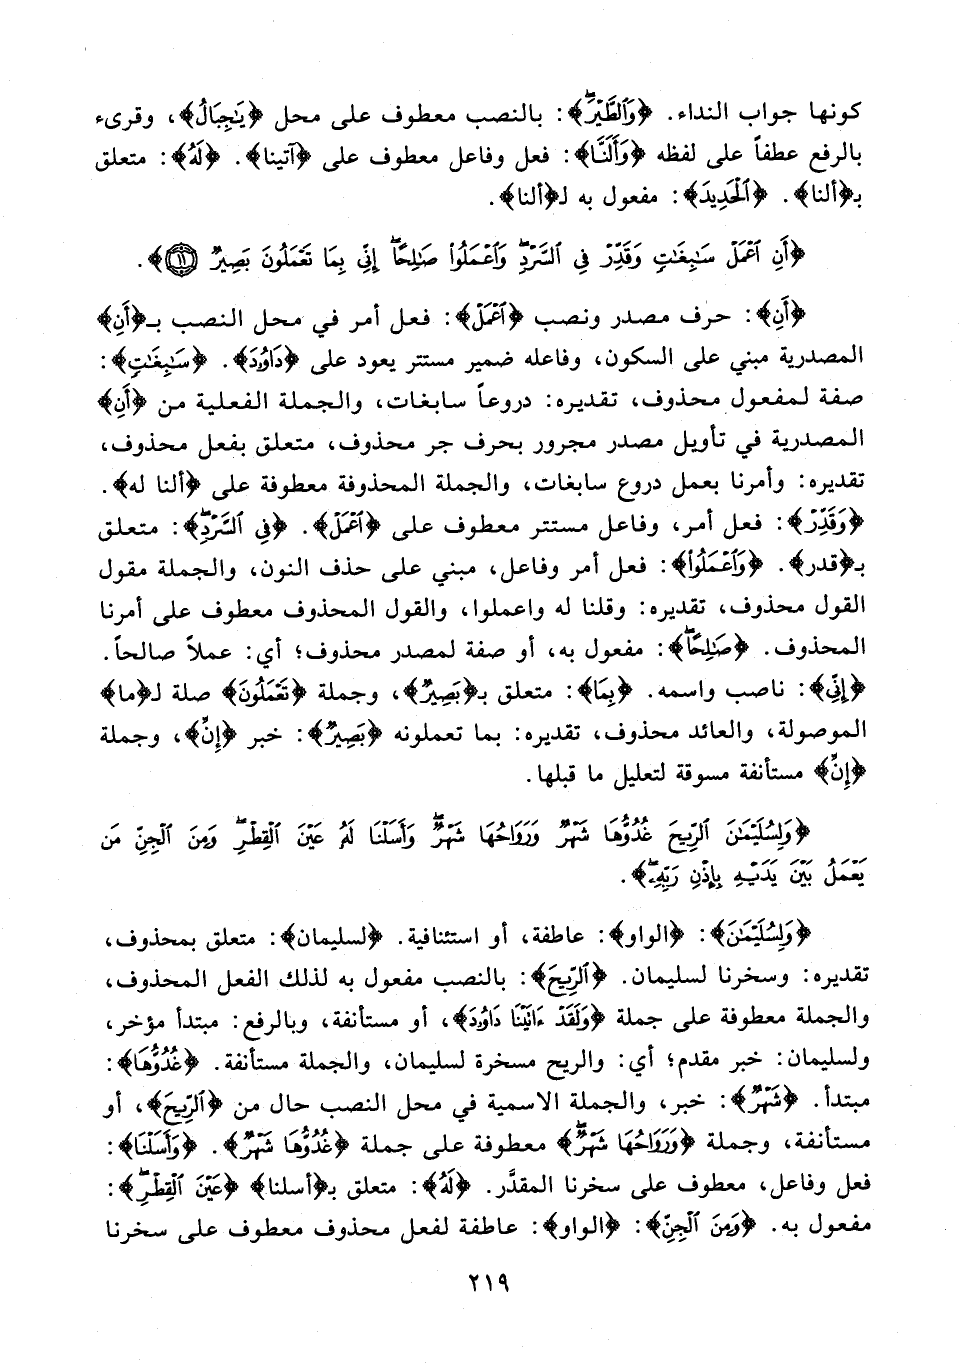 كونها جواب النداء. ﴿وَٱلطَّيْرَۖ﴾: بالنصب معطوف على محل ﴿يَٰجِبَالُ﴾، وقرىء
بالرفع عطفاً على لفظه ﴿وَأَلَنَّا﴾: فعل وفاعل معطوف على ﴿آتينا﴾. ﴿لَهُ﴾: متعلق
بـ﴿ألنا﴾. ﴿ٱلْحَدِيدَ﴾: مفعول به لـ﴿ألنا﴾.
﴿أَنِ ٱعْمَلْ سَٰبِغَٰتٍ وَقَدِّرْ فِى ٱلسَّرْدِۖ وَٱعْمَلُوا۟ صَٰلِحًاۖ إِنِّى بِمَا تَعْمَلُونَ بَصِيرٌ ١١﴾.
﴿أَنِ﴾: حرف مصدر ونصب ﴿ٱعْمَلْ﴾: فعل أمر في محل النصب بـ﴿أَنِ﴾
المصدرية مبني على السكون، وفاعله ضمير مستتر يعود على ﴿دَاوُۥدَ﴾. ﴿سَٰبِغَٰتٍ﴾:
صفة لمفعول محذوف، تقديره: دروعاً سابغات، والجملة الفعلية من ﴿أَنِ﴾
المصدرية في تأويل مصدر مجرور بحرف جر محذوف، متعلق بفعل محذوف،
تقديره: وأمرنا بعمل دروع سابغات، والجملة المحذوفة معطوفة على ﴿ألنا له﴾.
﴿وَقَدِّرْ﴾: فعل أمر، وفاعل مستتر معطوف على ﴿ٱعْمَلْ﴾. ﴿فِى ٱلسَّرْدِۖ﴾: متعلق
بـ﴿قدر﴾. ﴿وَٱعْمَلُوا۟﴾: فعل أمر وفاعل، مبني على حذف النون، والجملة مقول
القول محذوف، تقديره: وقلنا له واعملوا، والقول المحذوف معطوف على أمرنا
المحذوف. ﴿صَٰلِحًاۖ﴾: مفعول به، أو صفة لمصدر محذوف؛ أي: عملاً صالحاً.
﴿إِنِّى﴾: ناصب واسمه. ﴿بِمَا﴾: متعلق بـ﴿بَصِيرٌ﴾، وجملة ﴿تَعْمَلُونَ﴾ صلة لـ﴿ما﴾
الموصولة، والعائد محذوف، تقديره: بما تعملونه ﴿بَصِيرٌ﴾: خبر ﴿إِنَّ﴾، وجملة
﴿إِنَّ﴾ مستأنفة مسوقة لتعليل ما قبلها.
﴿وَلِسُلَيْمَٰنَ ٱلرِّيحَ غُدُوُّهَا شَهْرٌ وَرَوَاحُهَا شَهْرٌۖ وَأَسَلْنَا لَهُۥ عَيْنَ ٱلْقِطْرِۖ وَمِنَ ٱلْجِنِّ مَن
يَعْمَلُ بَيْنَ يَدَيْهِ بِإِذْنِ رَبِّهِۦۖ﴾.
﴿وَلِسُلَيْمَٰنَ﴾: ﴿الواو﴾: عاطفة، أو استئنافية. ﴿لسليمان﴾: متعلق بمحذوف،
تقديره: وسخرنا لسليمان. ﴿ٱلرِّيحَ﴾: بالنصب مفعول به لذلك الفعل المحذوف،
والجملة معطوفة على جملة ﴿وَلَقَدْ ءَاتَيْنَا دَاوُۥدَ﴾، أو مستأنفة، وبالرفع: مبتدأ مؤخر،
ولسليمان: خبر مقدم؛ أي: والريح مسخرة لسليمان، والجملة مستأنفة. ﴿غُدُوُّهَا﴾:
مبتدأ. ﴿شَهْرٌ﴾: خبر، والجملة الاسمية في محل النصب حال من ﴿ٱلرِّيحَ﴾، أو
مستأنفة، وجملة ﴿وَرَوَاحُهَا شَهْرٌۖ﴾ معطوفة على جملة ﴿غُدُوُّهَا شَهْرٌ﴾. ﴿وَأَسَلْنَا﴾:
فعل وفاعل، معطوف على سخرنا المقدَّر. ﴿لَهُ﴾: متعلق بـ﴿أسلنا﴾ ﴿عَيْنَ ٱلْقِطْرِۖ﴾:
مفعول به. ﴿وَمِنَ ٱلْجِنِّ﴾: ﴿الواو﴾: عاطفة لفعل محذوف معطوف على سخرنا
٢١٩